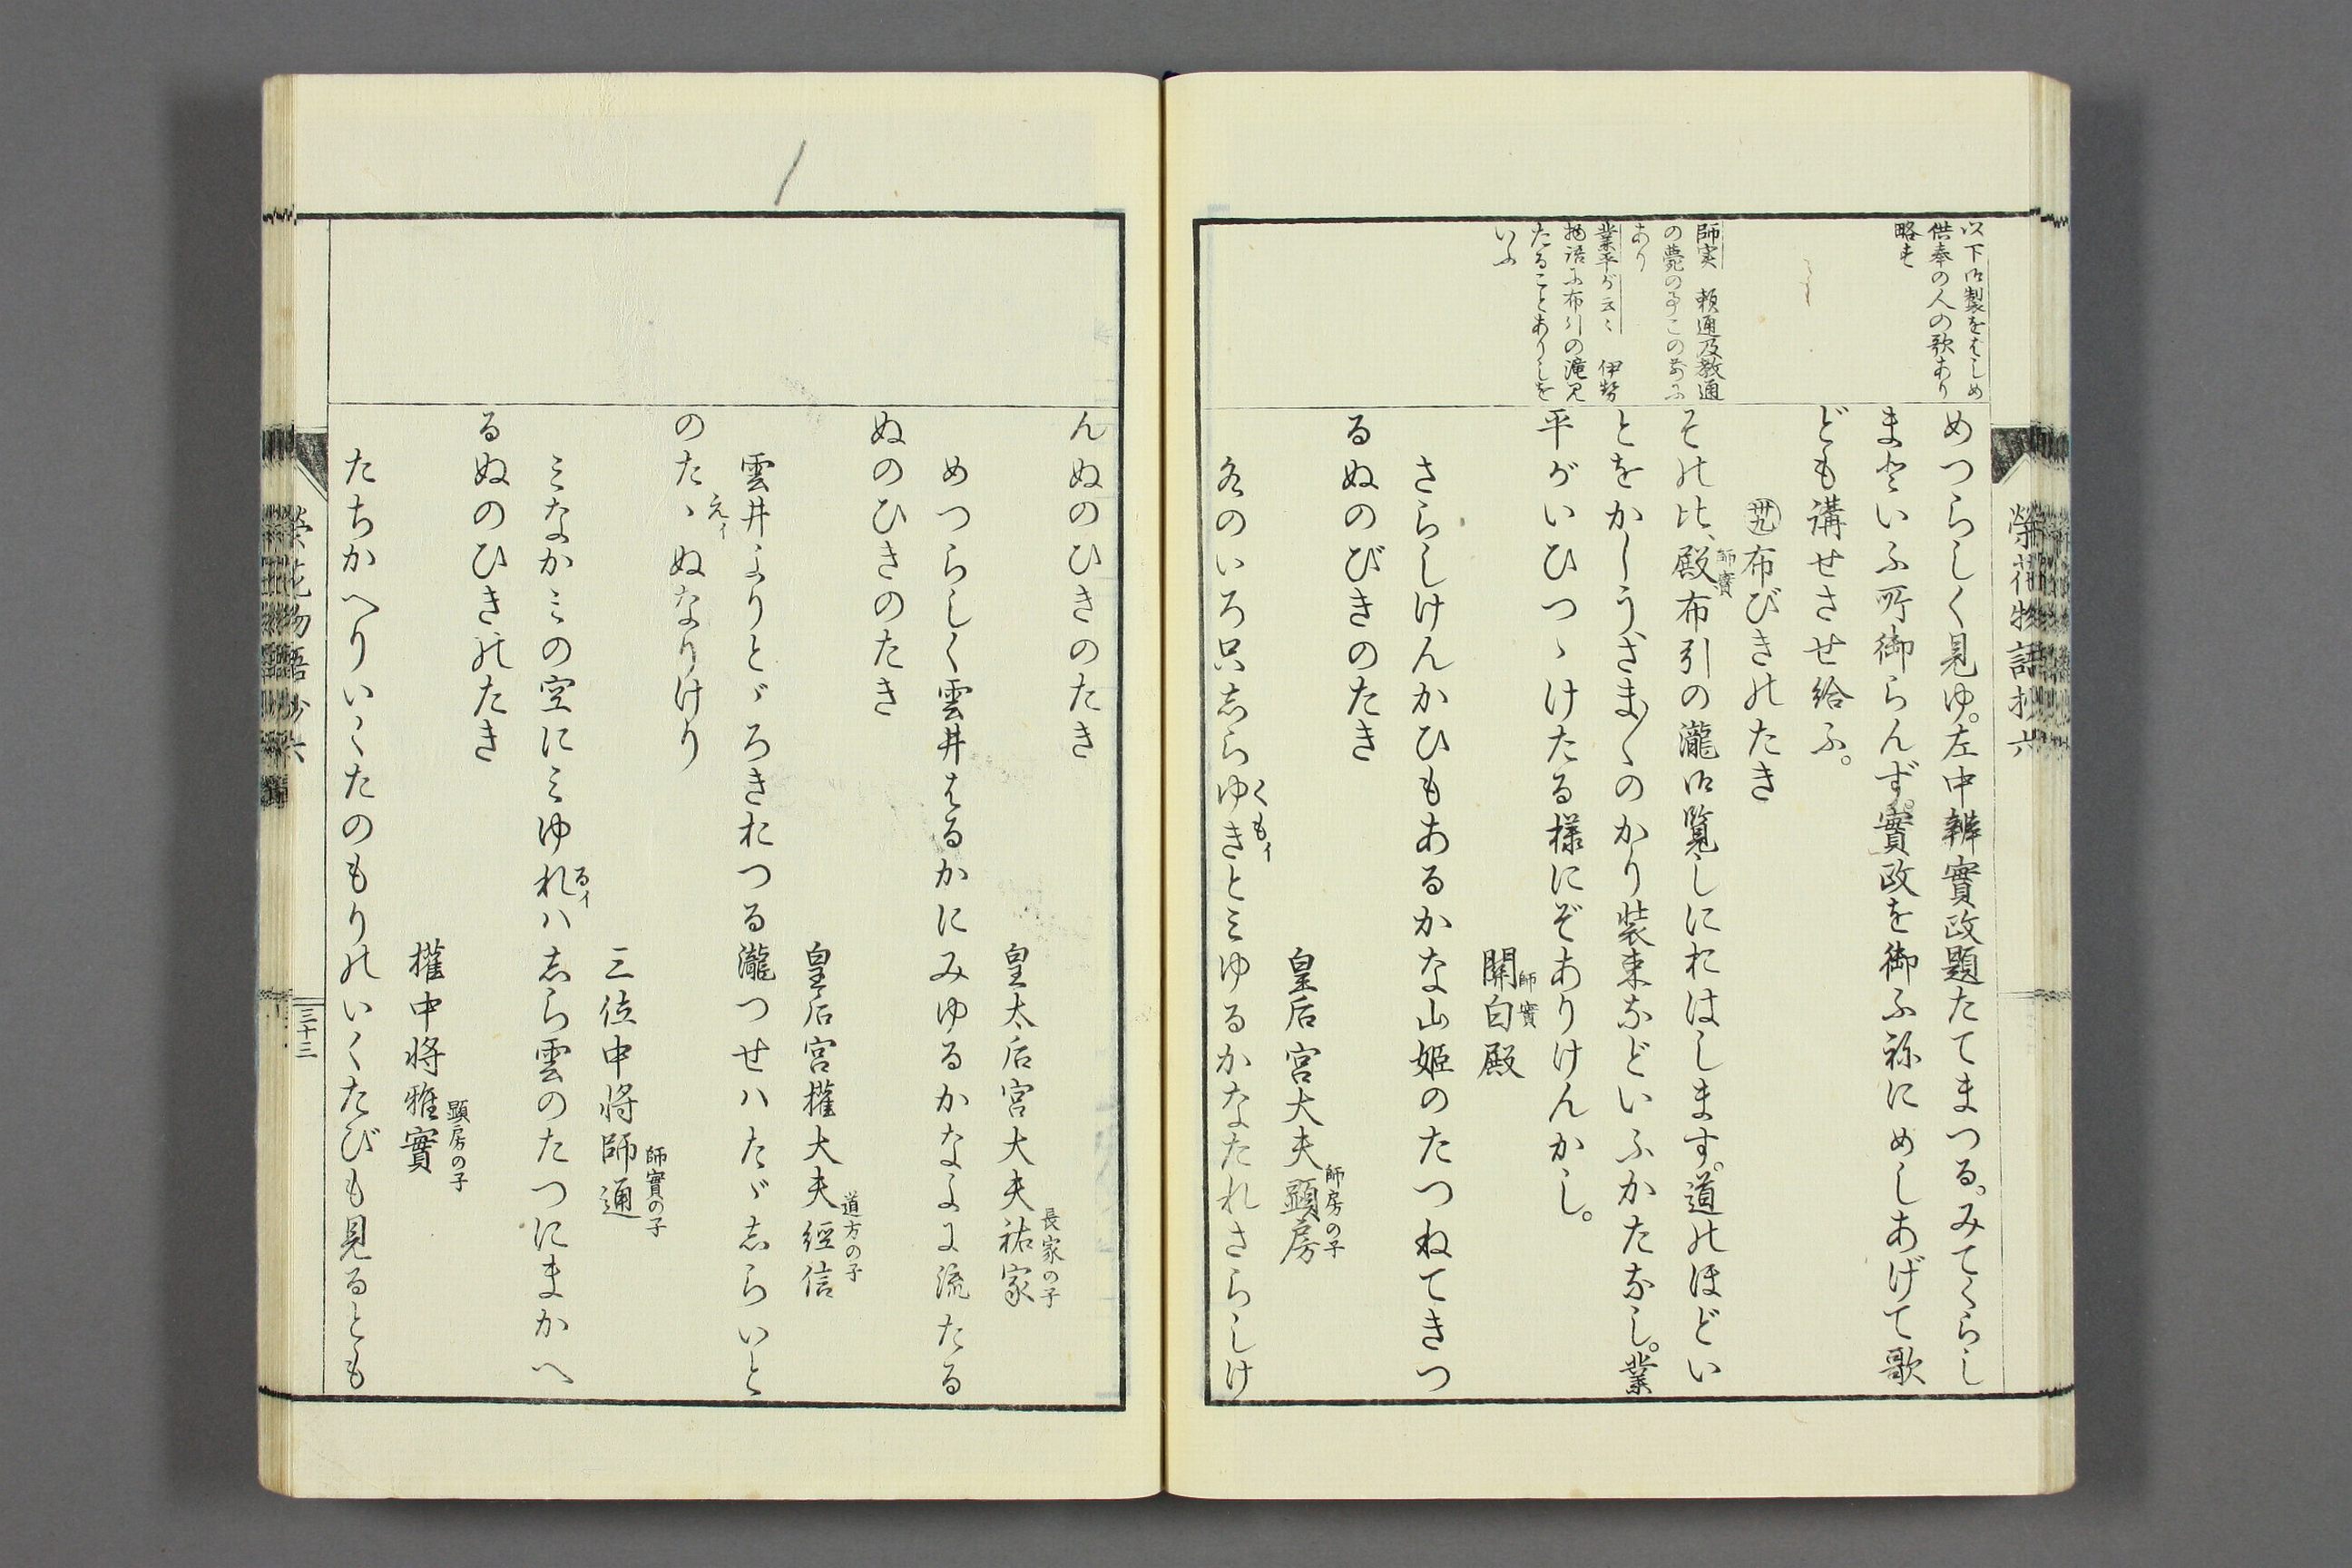 榮花物語抄六
以下御製をはしめ
供奉の人の歌あり
略す
師実　頼通及教通
の薨の事この前に
あり
業平が云々　伊勢
物語に布引の滝見
たることありしを
いふ
めつらしく見ゆ。左中辨實政題たてまつる。みてくらし
まといふ所御らんず。實政を御ふねにめしあげて歌
ども講せさせ給ふ。
卅九 布びきのたき
その比、殿布引の瀧御覧しにおはします。道のほどい
師實
とをかしう、さま〴〵のかり装束などいふかたなし。業
平がいひつゝけたる様にぞありけんかし。
關白殿
師實
さらしけんかひもあるかな山姫のたつねてきつ
るぬのびきのたき
皇后宮大夫顕房
師房の子
水のいろ只志らゆきとミゆるかなたれさらしけ
くもイ
んぬのひきのたき
皇太后宮大夫祐家
長家の子
めつらしく雲井はるかにみゆるかなよに流たる
ぬのひきのたき
皇后宮權大夫經信
道方の子
雲井よりとゞろきおつる瀧つせハたゞ志らいと
のたゝぬなりけり
えイ
三位中将師通
師實の子
ミなかミの空にミゆれハ志ら雲のたつにまかへ
るイ
るぬのひきのたき
權中将雅實
顕房の子
たちかへりいくたのもりのいくたびも見るとも
榮花物語抄六
三十三